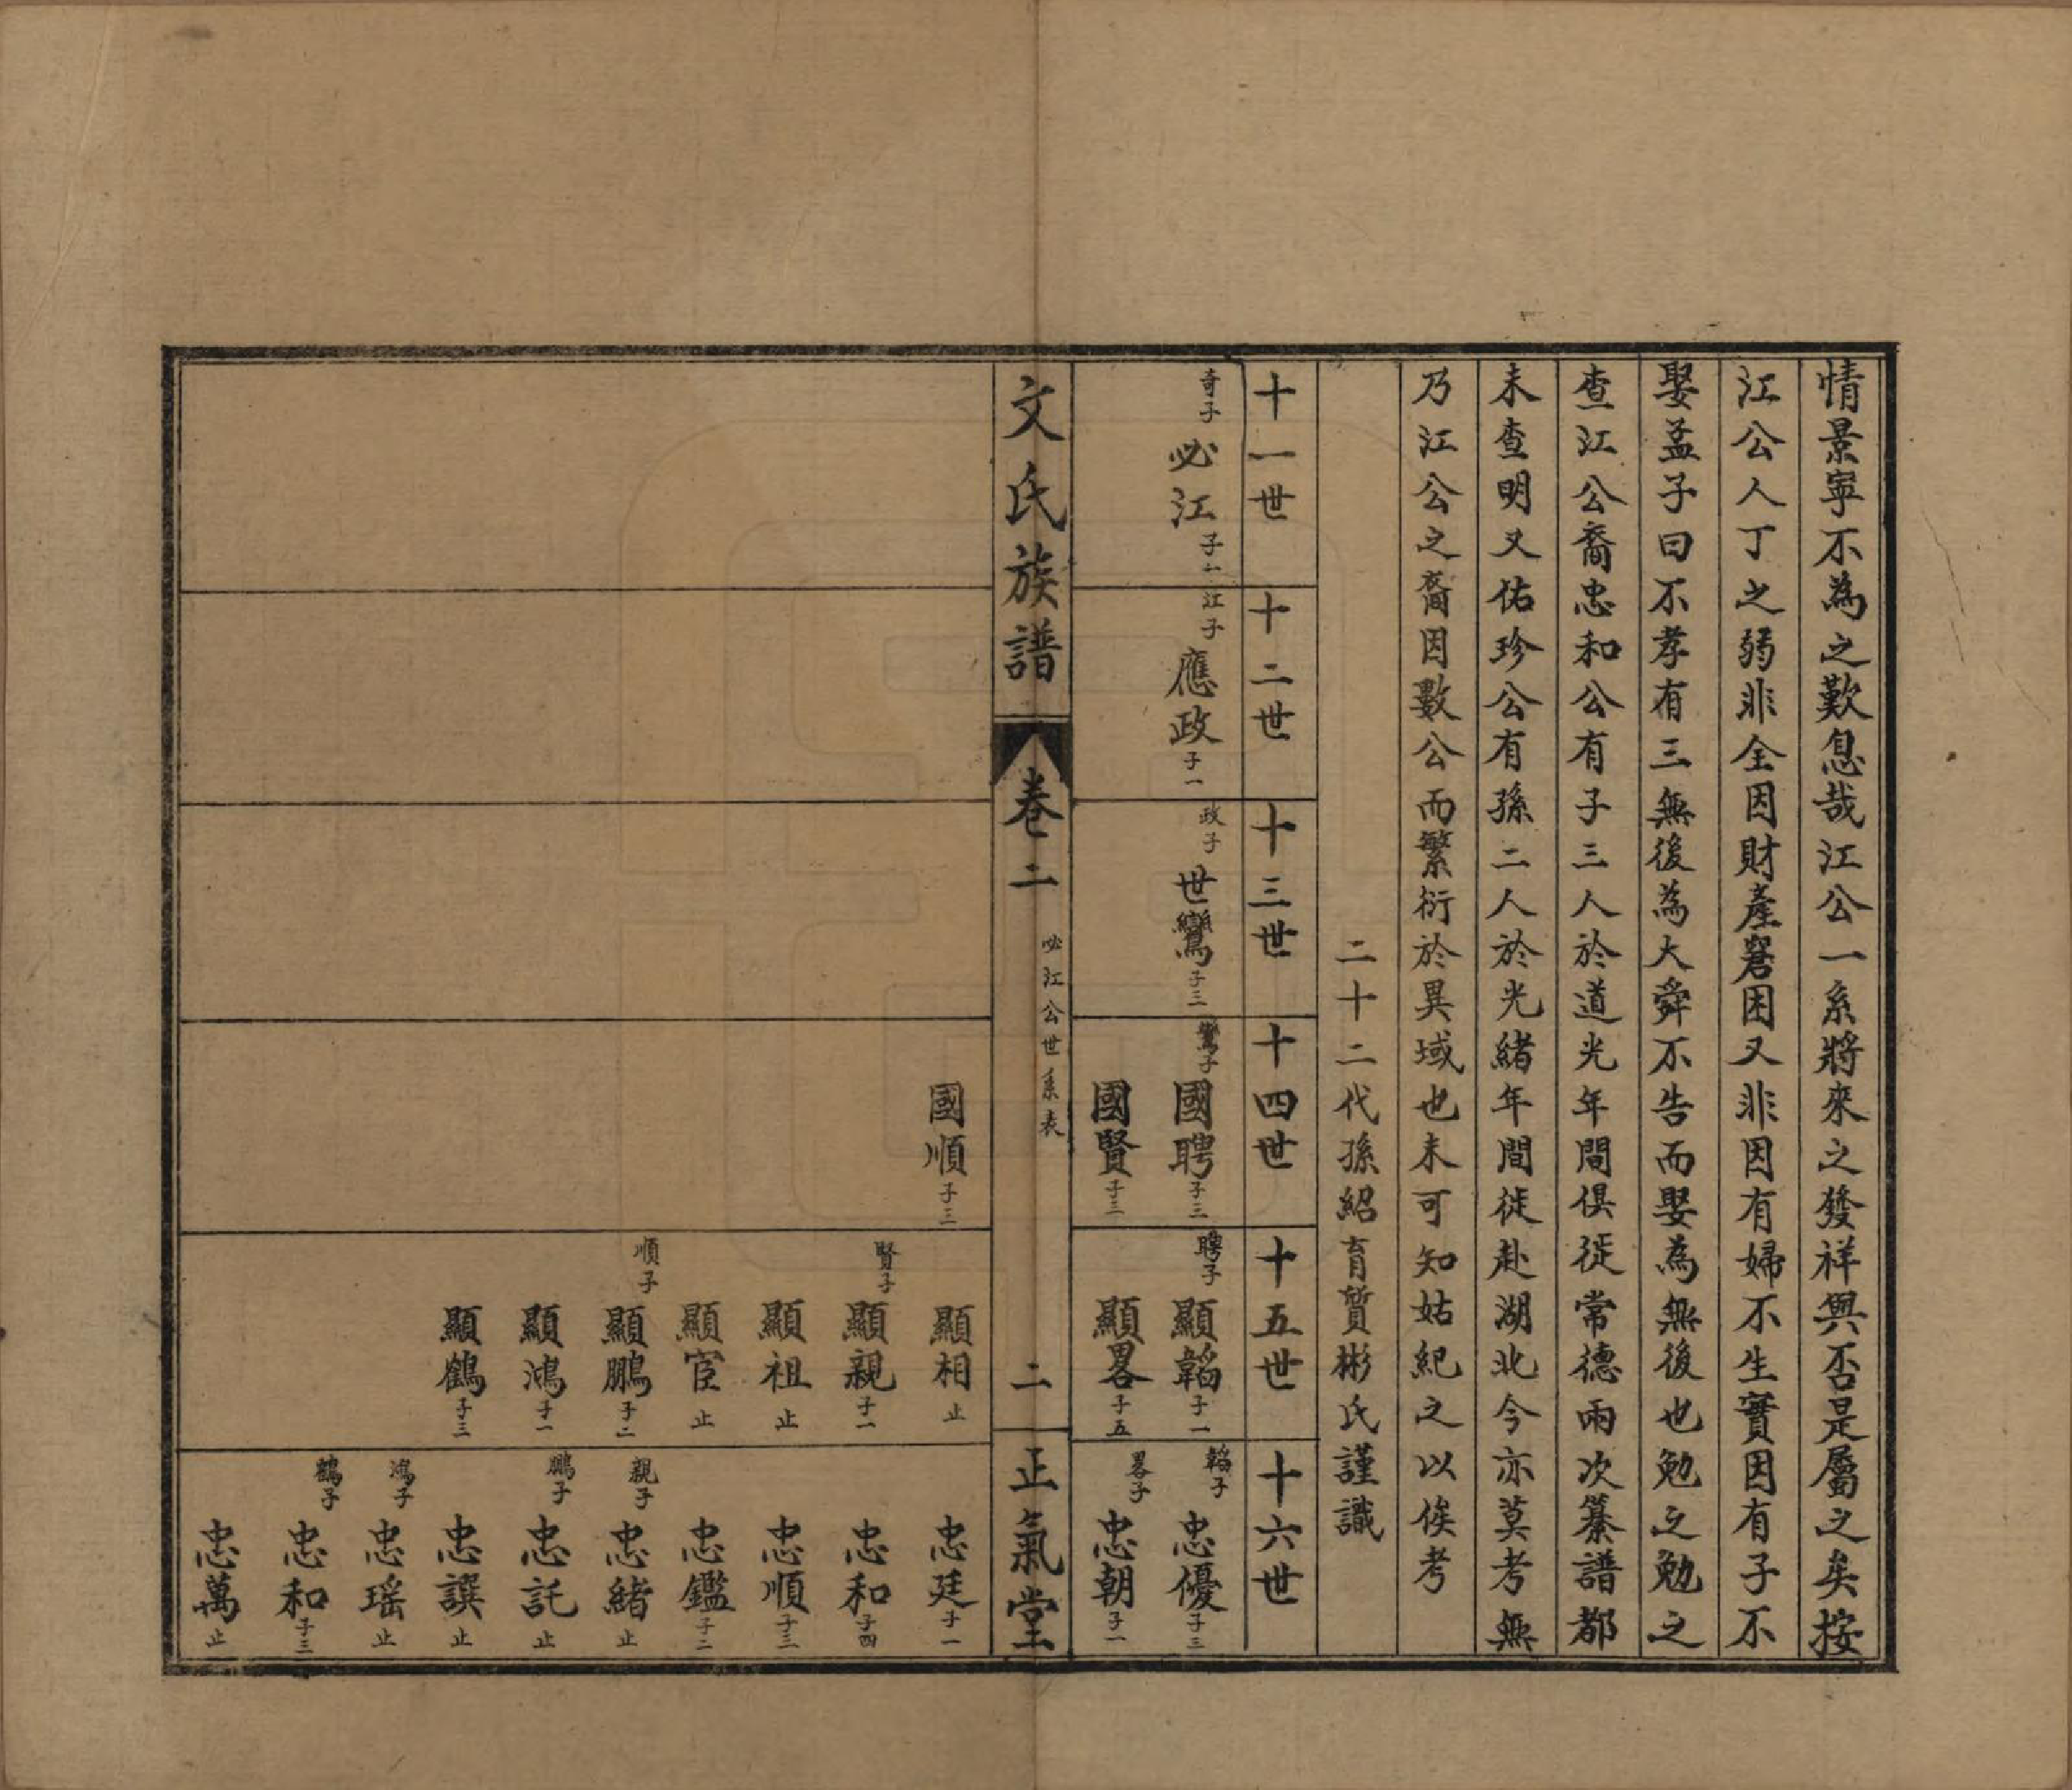 情景寧不為之歎息哉江公一系將來之發祥與否是屬之矣按
江公人丁之弱非全因財產窘困又非因有婦不生實因有子不
娶孟子曰不孝有三無後為大舜不告而娶為無後也勉之勉之
查江公裔忠和公有子三人於道光年間俱徙常德兩次纂譜都
未查明又佑珍公有孫二人於光緒年間徙赴湖北今亦莫考無
乃江公之裔因數公而繁衍於異域也未可知姑紀之以俟考
二十二代孫紹育質彬氏謹識
十一世
十二世
十三世
十四世
十五世
十六世
奇子 必江 子一
江子 應政 子一
政子 世鸞 子三
鸞子 國聘 子三
聘子 顯韜 子一
韜子 忠優 子三
國賢 子三
顯畧 子五
畧子 忠朝 子一
文氏族譜
卷二
必江公世系表
二
正氣堂
國順 子三
顯相 止
忠廷 子一
賢子 顯親 子一
忠和 子四
顯祖 止
忠順 子三
顯宦 止
忠鑑 子二
順子 顯鵬 子二
親子 忠緒 止
顯鴻 子一
鵬子 忠託 止
顯鶴 子三
忠譔 止
鴻子 忠瑶 止
鶴子 忠和 子三
忠萬 止